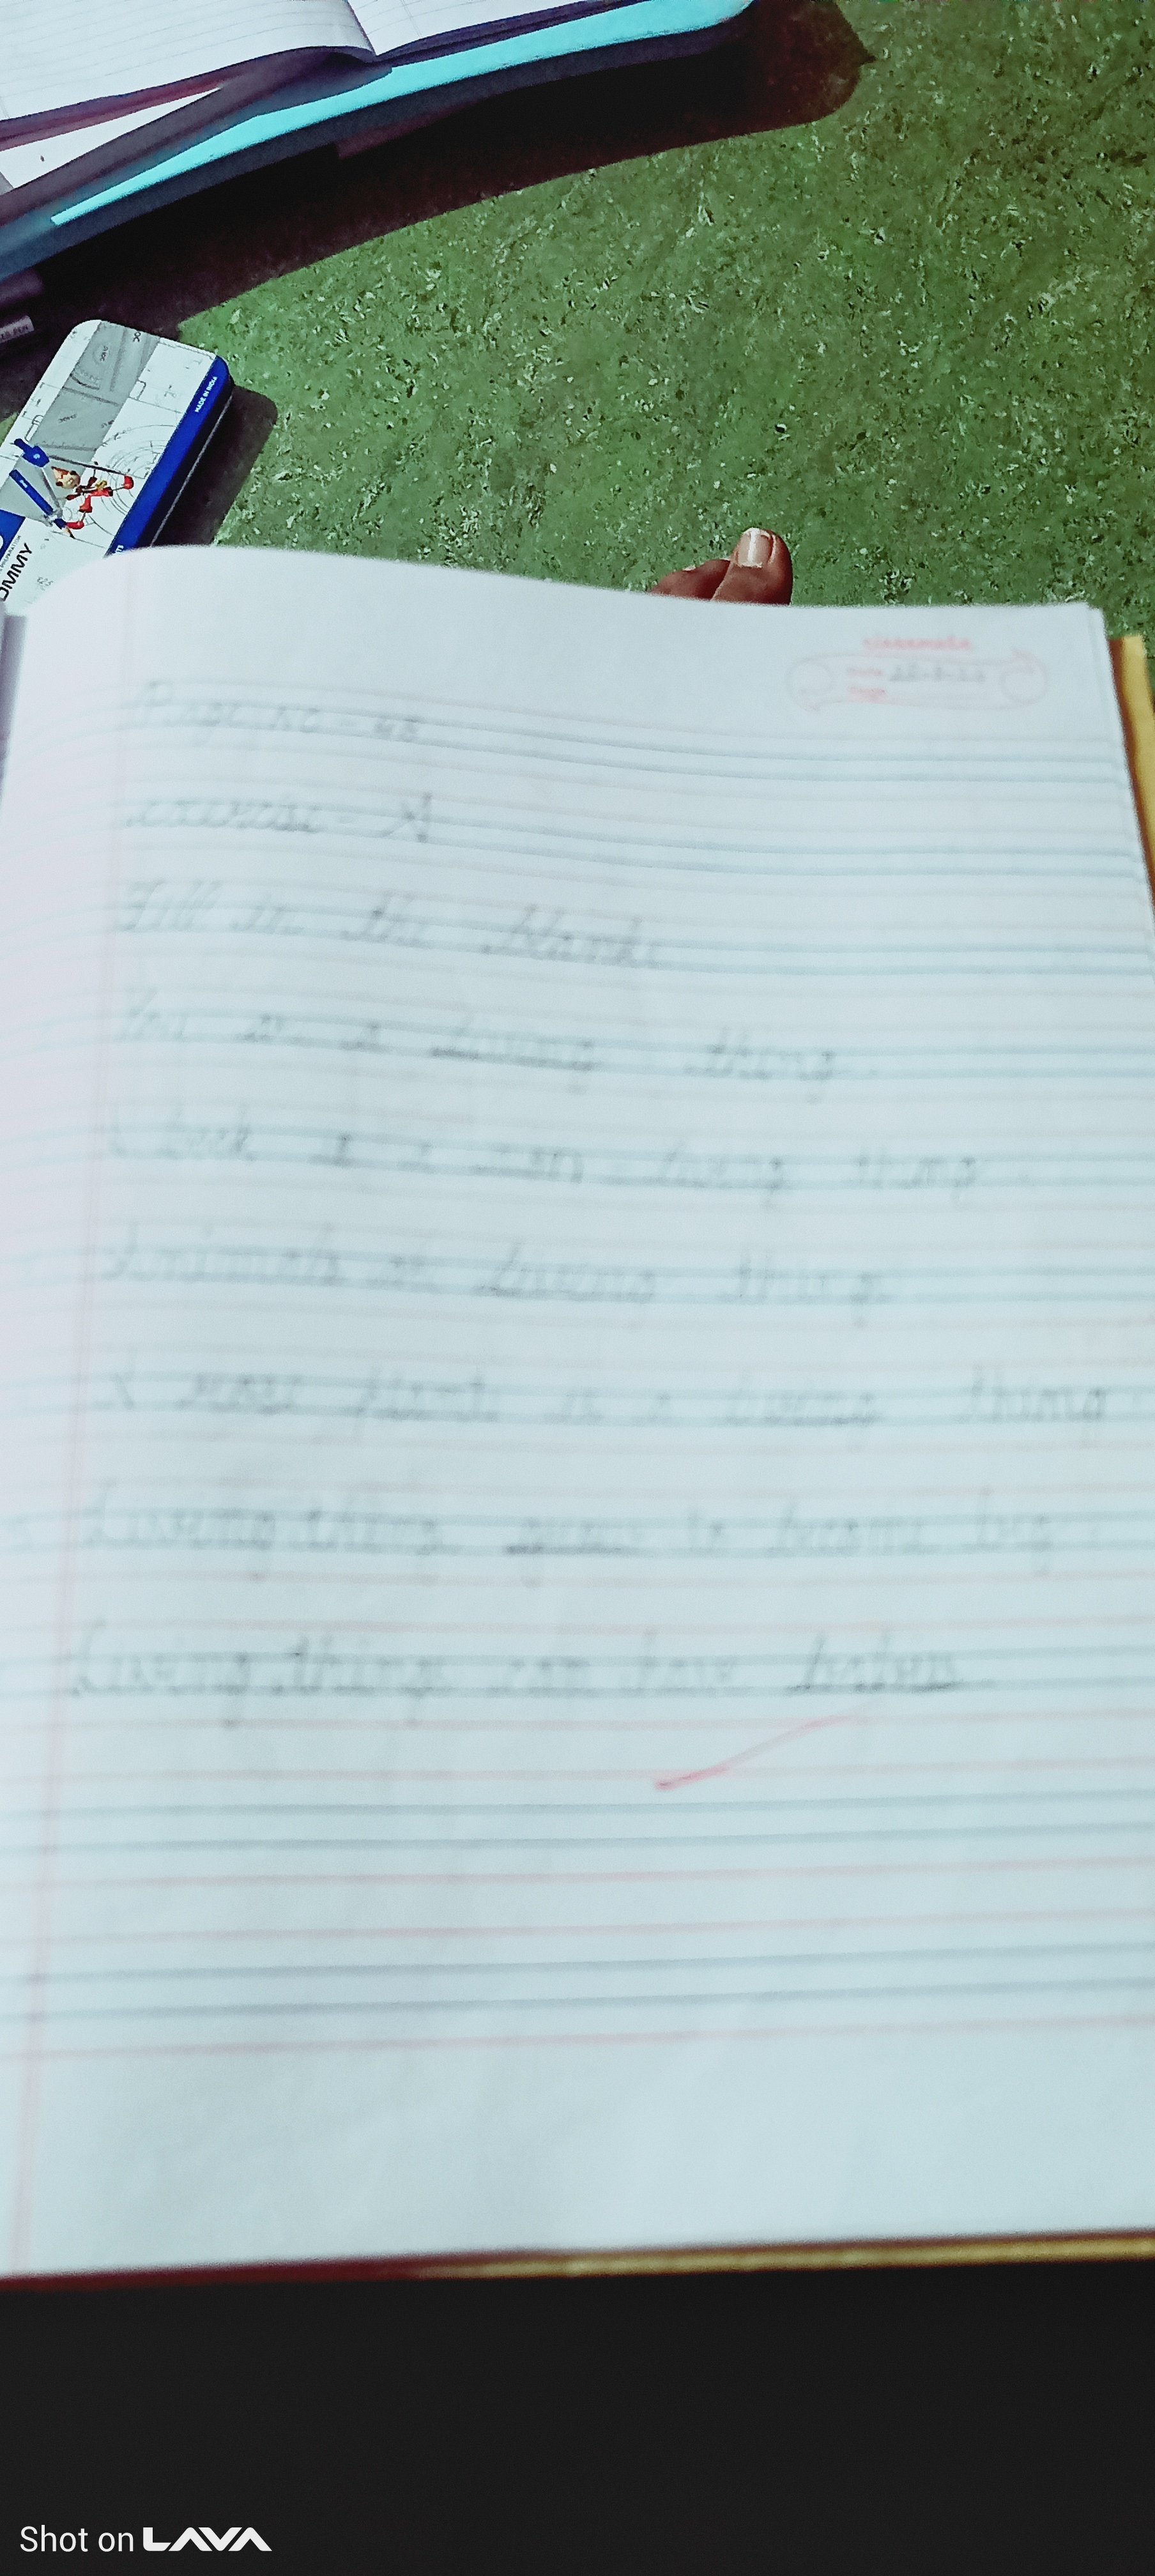 MADE IN INDIA
OMMY
classmate
Date
Page
Page no - 48
Exercise - A
Fill in the blanks
You are a living thing.
A book is a non-living thing.
Animals are living thing
A rose plant is a living thing.
Living things grow to become big.
Living things can have babies
Shot on LAVA